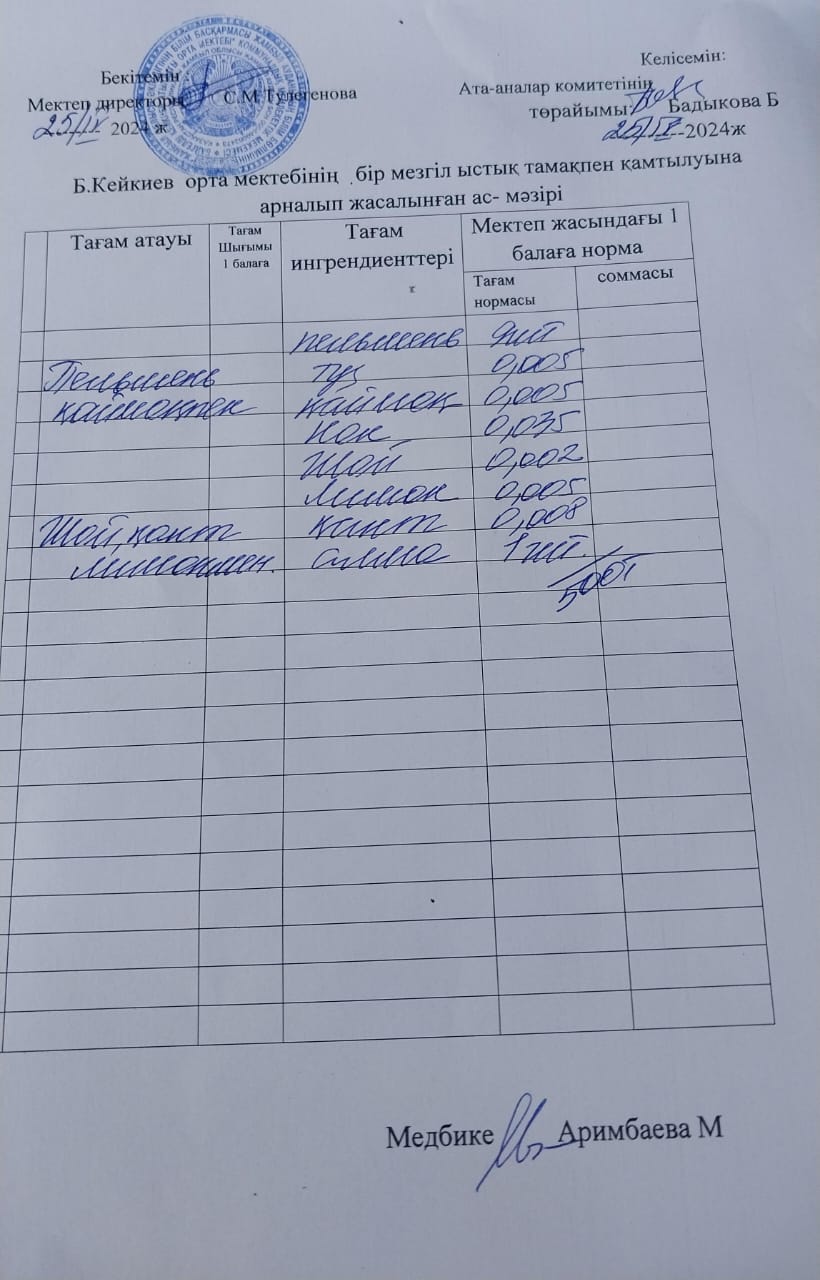 Бекітемін :
Келісемін:
Мектеп директоры С.М.Тулегенова
Ата-аналар комитетінің
төрайымы: Бадыкова Б
25/IX 2024 ж
25/IX-2024ж
Б.Кейкиев орта мектебінің бір мезгіл ыстық тамақпен қамтылуына
арналып жасалынған ас- мәзірі
Тағам атауы
Тағам
Шығымы
1 балаға
Тағам
ингрендиенттері
Мектеп жасындағы 1
балаға норма
Тағам
нормасы
соммасы
пельмень 9шт
Пельмень тұз 0,005
қаймоқпен қаймоқ 0,005
нон 0,035
Шой 0,002
лимон 0,005
Шой, қант қант 0,008
лимонмен. алма 1шт.
Медбике Аримбаева М